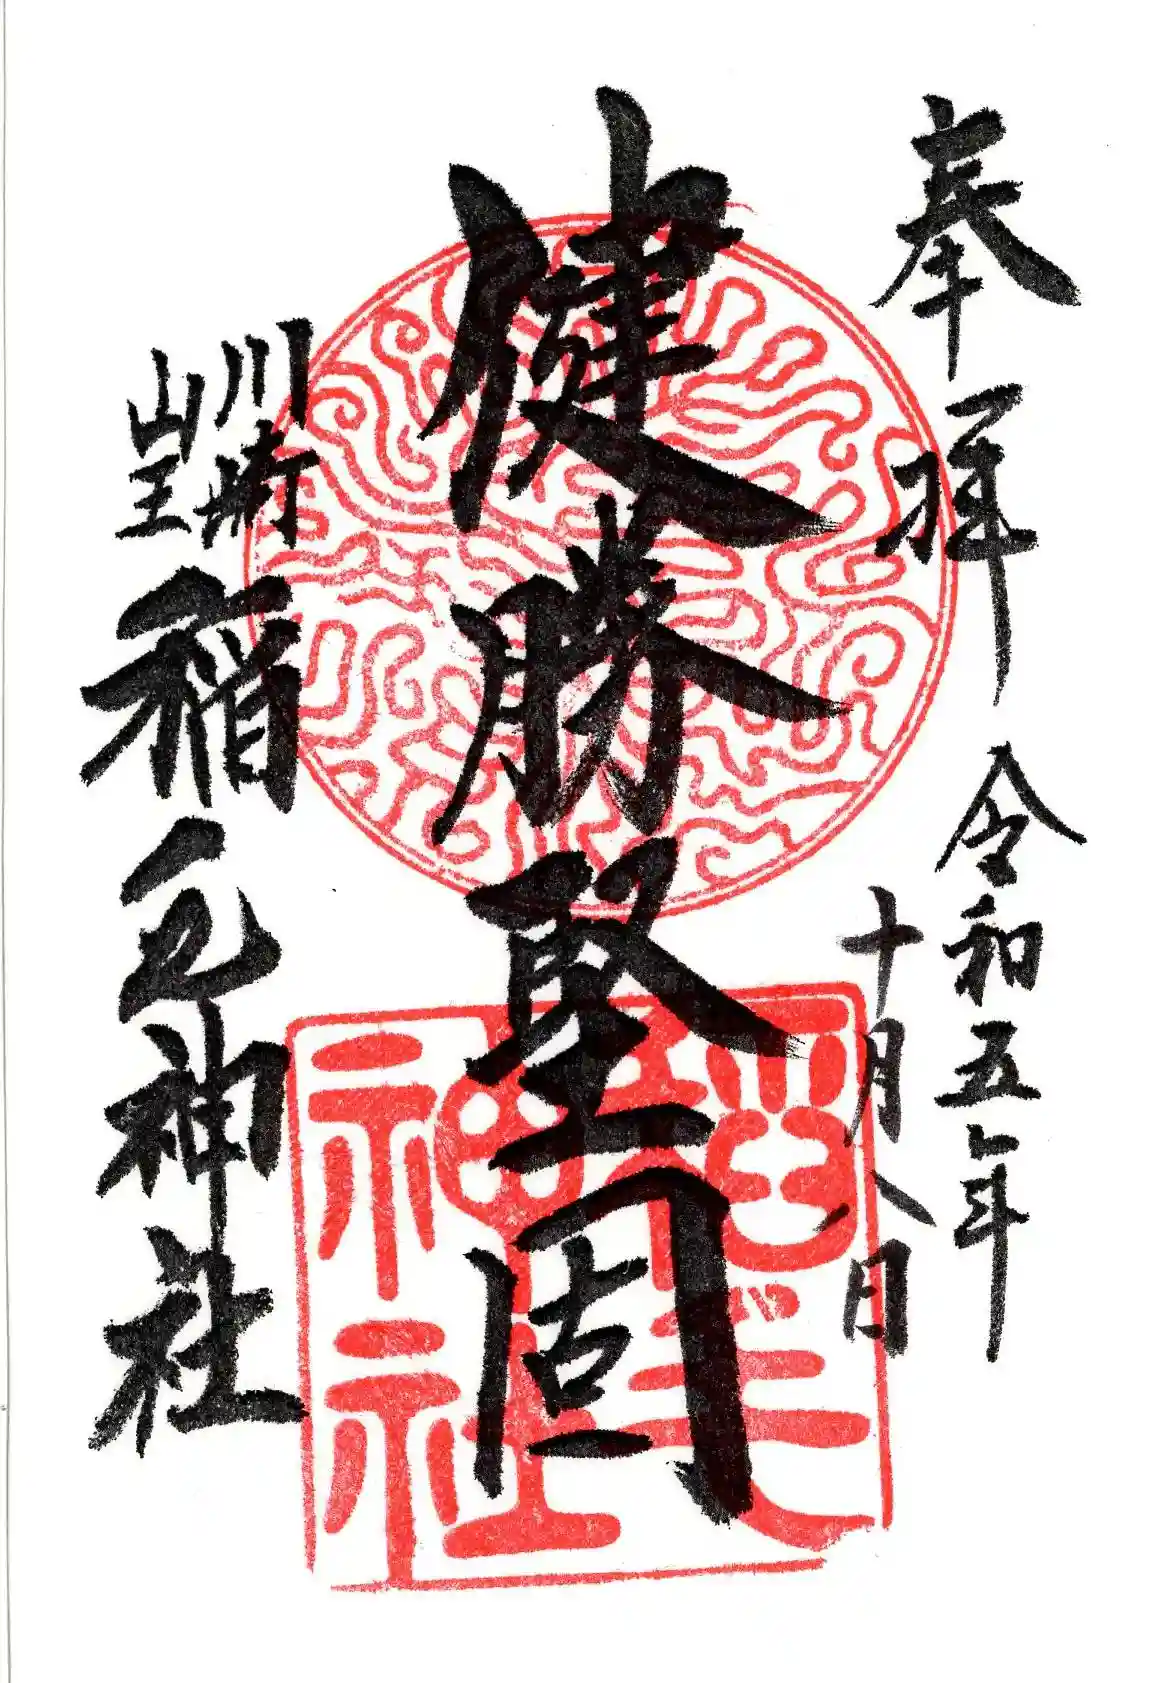 奉拝
令和五年
十月八日
健勝堅固
川崎
山王
稲毛神社
稲毛
神社